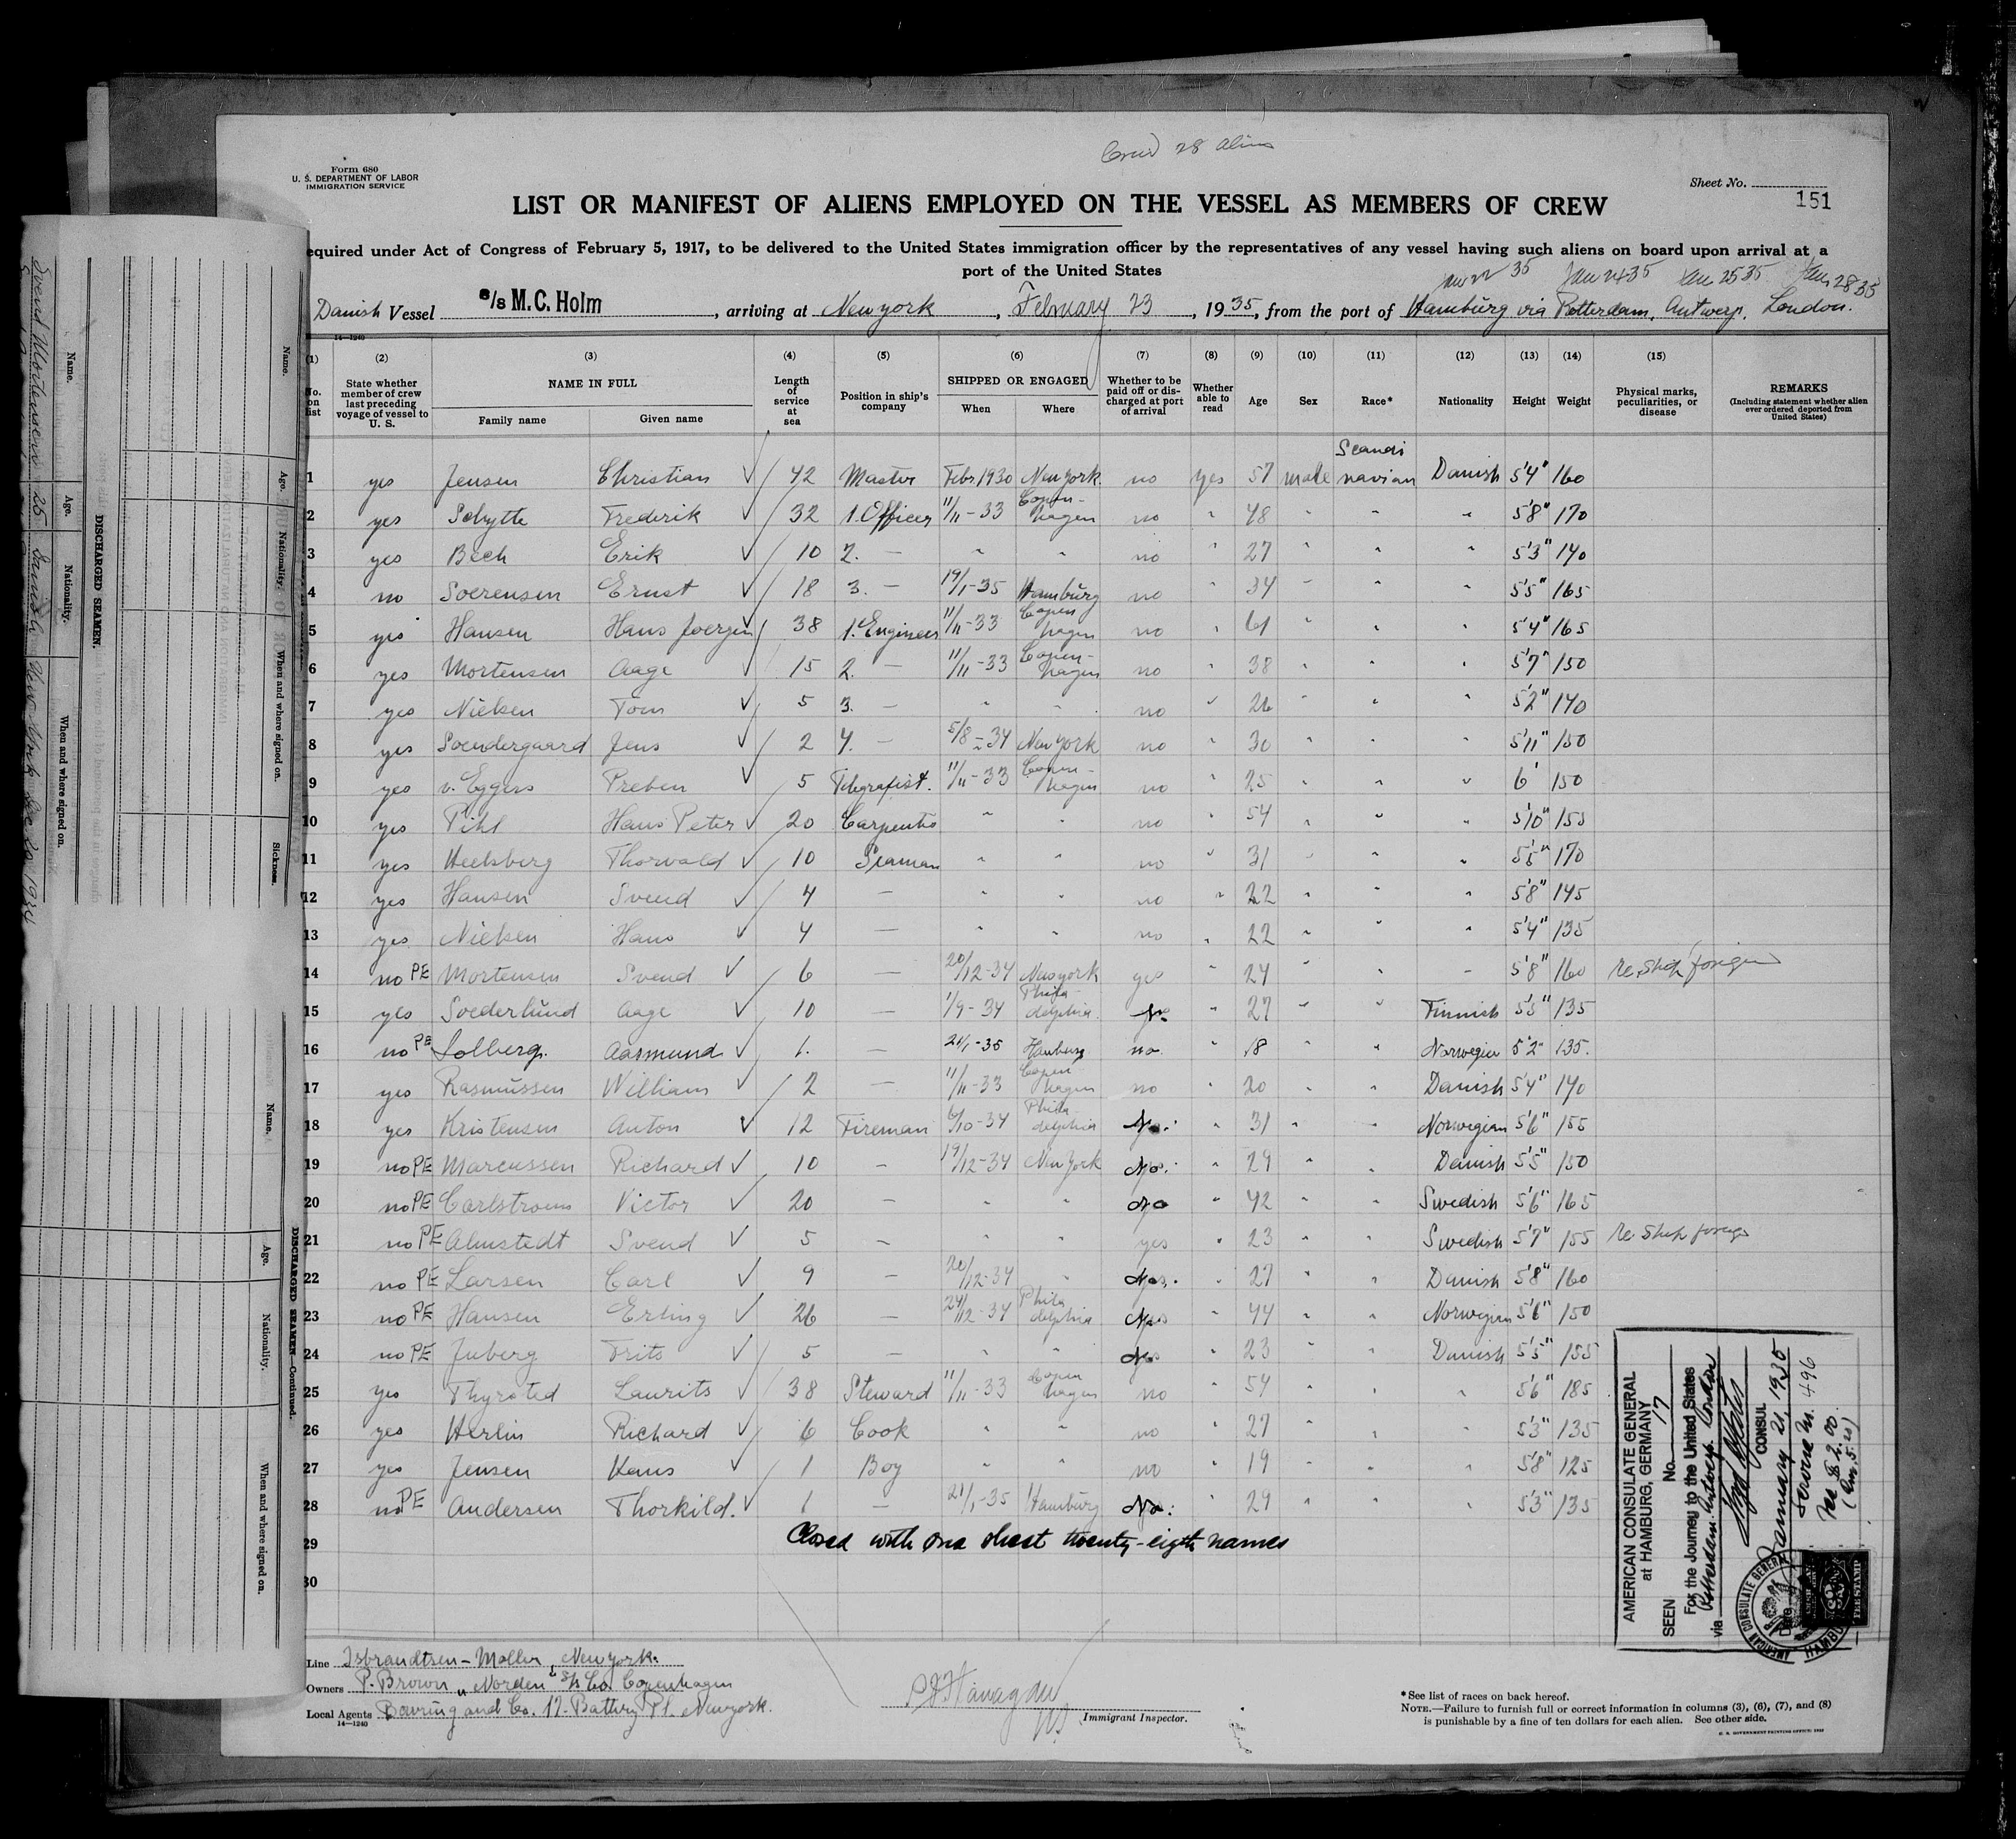 Crew 28 Aliens
Form 680
U. S. DEPARTMENT OF LABOR
IMMIGRATION SERVICE
Sheet No.
151
LIST OR MANIFEST OF ALIENS EMPLOYED ON THE VESSEL AS MEMBERS OF CREW
equired under Act of Congress of February 5, 1917, to be delivered to the United States immigration officer by the representatives of any vessel having such aliens on board upon arrival at a
port of the United States
Jan 22 35 Jan 24 35 Jan 25 35 Jan 28 35
Danish Vessel S/S M. C. Holm, arriving at New york, February 23, 1935, from the port of Hamburg via Rotterdam, Antwerp, London.
14—1240
(1) (2) (3) (4) (5) (6) (7) (8) (9) (10) (11) (12) (13) (14) (15)
No. on list
State whether member of crew last preceding voyage of vessel to U. S.
NAME IN FULL
Family name
Given name
Length of service at sea
Position in ship's company
SHIPPED OR ENGAGED
When
Where
Whether to be paid off or discharged at port of arrival
Whether able to read
Age
Sex
Race*
Nationality
Height
Weight
Physical marks, peculiarities, or disease
REMARKS
(Including statement whether alien ever ordered deported from United States)
1 yes Jensen Christian ✓ 42 Master Febr. 1930 New york no yes 57 male Scandinavian Danish 5'4" 160
2 yes Schytte Frederik ✓ 32 1. Officer 11/11-33 Copenhagen no " 48 " " " 5'8" 170
3 yes Bech Erik ✓ 10 2. — " " no " 27 " " " 5'3" 140
4 no Soerensen Ernst ✓ 18 3. — 19/1-35 Hamburg no 34 " " " 5'5" 165
5 yes Hansen Hans Joergen ✓ 38 1. Engineer 11/11-33 Copenhagen no " 61 " " " 5'4" 165
6 yes Mortensen Aage ✓ 15 2. — 11/11-33 Copenhagen no " 38 " " " 5'7" 150
7 yes Nielsen Tom ✓ 5 3. — " " no " 26 " " " 5'2" 140
8 yes Soendergaard Jens ✓ 2 4. — 5/8-34 New york no " 30 " " " 5'11" 150
9 yes v. Eggers Preben ✓ 5 Telegrafist. 11/11-33 Copenhagen no " 25 " " " 6' 150
10 yes Pihl Hans Peter ✓ 20 Carpenter " " no " 54 " " " 5'10" 155
11 yes Heelsberg Thorvald ✓ 10 Seaman " " no " 31 " " " 5'5" 170
12 yes Hansen Svend ✓ 4 — " " no " 22 " " " 5'8" 145
13 yes Nielsen Hans ✓ 4 — " " no " 22 " " " 5'4" 135
14 no PE Mortensen Svend ✓ 6 — 20/12-34 New york yes " 24 " " " 5'8" 160 re ship foreign
15 yes Soederlund Aage ✓ 10 — 1/9-34 Philadelphia no " 27 " " Finnish 5'5" 135
16 no PE Solberg. Aasmund ✓ 1. — 21/1-35 Hamburg no " 18 " " Norwegian 5'2" 135.
17 yes Rasmussen William ✓ 2 — 11/11-33 Copenhagen no " 20 " " Danish 5'4" 140
18 yes Kristensen Anton ✓ 12 Fireman 6/10-34 Philadelphia No. " 31 " " Norwegian 5'6" 155
19 no PE Marcussen Richard ✓ 10 — 19/12-34 New York No. " 29 " " Danish 5'5" 150
20 no PE Carlstroem Victor ✓ 20 — " " no " 42 " " Swedish 5'6" 165
21 no PE Almstedt Svend ✓ 5 — " " yes " 23 " " Swedish 5'7" 155 re ship foreign
22 no PE Larsen Carl ✓ 9 — 20/12-34 " No. " 27 " " Danish 5'8" 160
23 no PE Hansen Erling ✓ 26 — 24/12-34 Philadelphia No " 44 " " Norwegian 5'6" 150
24 no PE Juberg Frits ✓ 5 — " " No " 23 " " Danish 5'5" 155
25 yes Thyrsted Laurits ✓ 38 Steward 11/11-33 Copenhagen no " 54 " " " 5'6" 185
26 yes Herlin Richard ✓ 6 Cook " " no " 27 " " " 5'3" 135
27 yes Jensen Kaus ✓ 1 Boy " " no " 19 " " " 5'8" 125
28 no PE Andersen Thorkild. ✓ 1 — 21/1-35 Hamburg No. " 29 " " " 5'3" 135
29 Closed with one sheet twenty-eigth names
30
AMERICAN CONSULATE GENERAL
at HAMBURG, GERMANY
SEEN No. 17
For the Journey to the United States
via Rotterdam, Antwerp, London
CONSUL
Date January 21, 1935
Service No. 496
Fee $2.00
AMERICAN CONSULATE GENERAL
HAMBURG
FEE STAMP
Line Isbrandtsen-Moller, New york.
Owners P. Brown, "Norden" S/S Co. Copenhagen
Local Agents Bowring and Co. 17. Battery Pl. New york.
14—1240
Immigrant Inspector.
*See list of races on back hereof.
NOTE.—Failure to furnish full or correct information in columns (3), (6), (7), and (8)
is punishable by a fine of ten dollars for each alien. See other side.
U. S. GOVERNMENT PRINTING OFFICE
DISCHARGED SEAMEN.
Name. Age. Nationality. When and where signed on.
Svend Mortensen 25 Danish New York Dec 20 1934
Name. Age. Nationality. When and where signed on. Sickness.
DISCHARGED SEAMEN—Continued.
Name. Age. Nationality. When and where signed on.